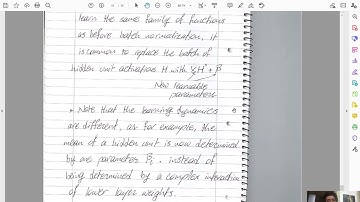 learn the same family of functions
as before batch normalization, it
is common to replace the batch of
hidden unit activations H with γH' + β
New learnable
parameters
Note that the learning dynamics
are different, as for example, the
mean of a hidden unit is now determined
by one parameter βi, instead of
being determined by a complex interaction
of lower layer weights.